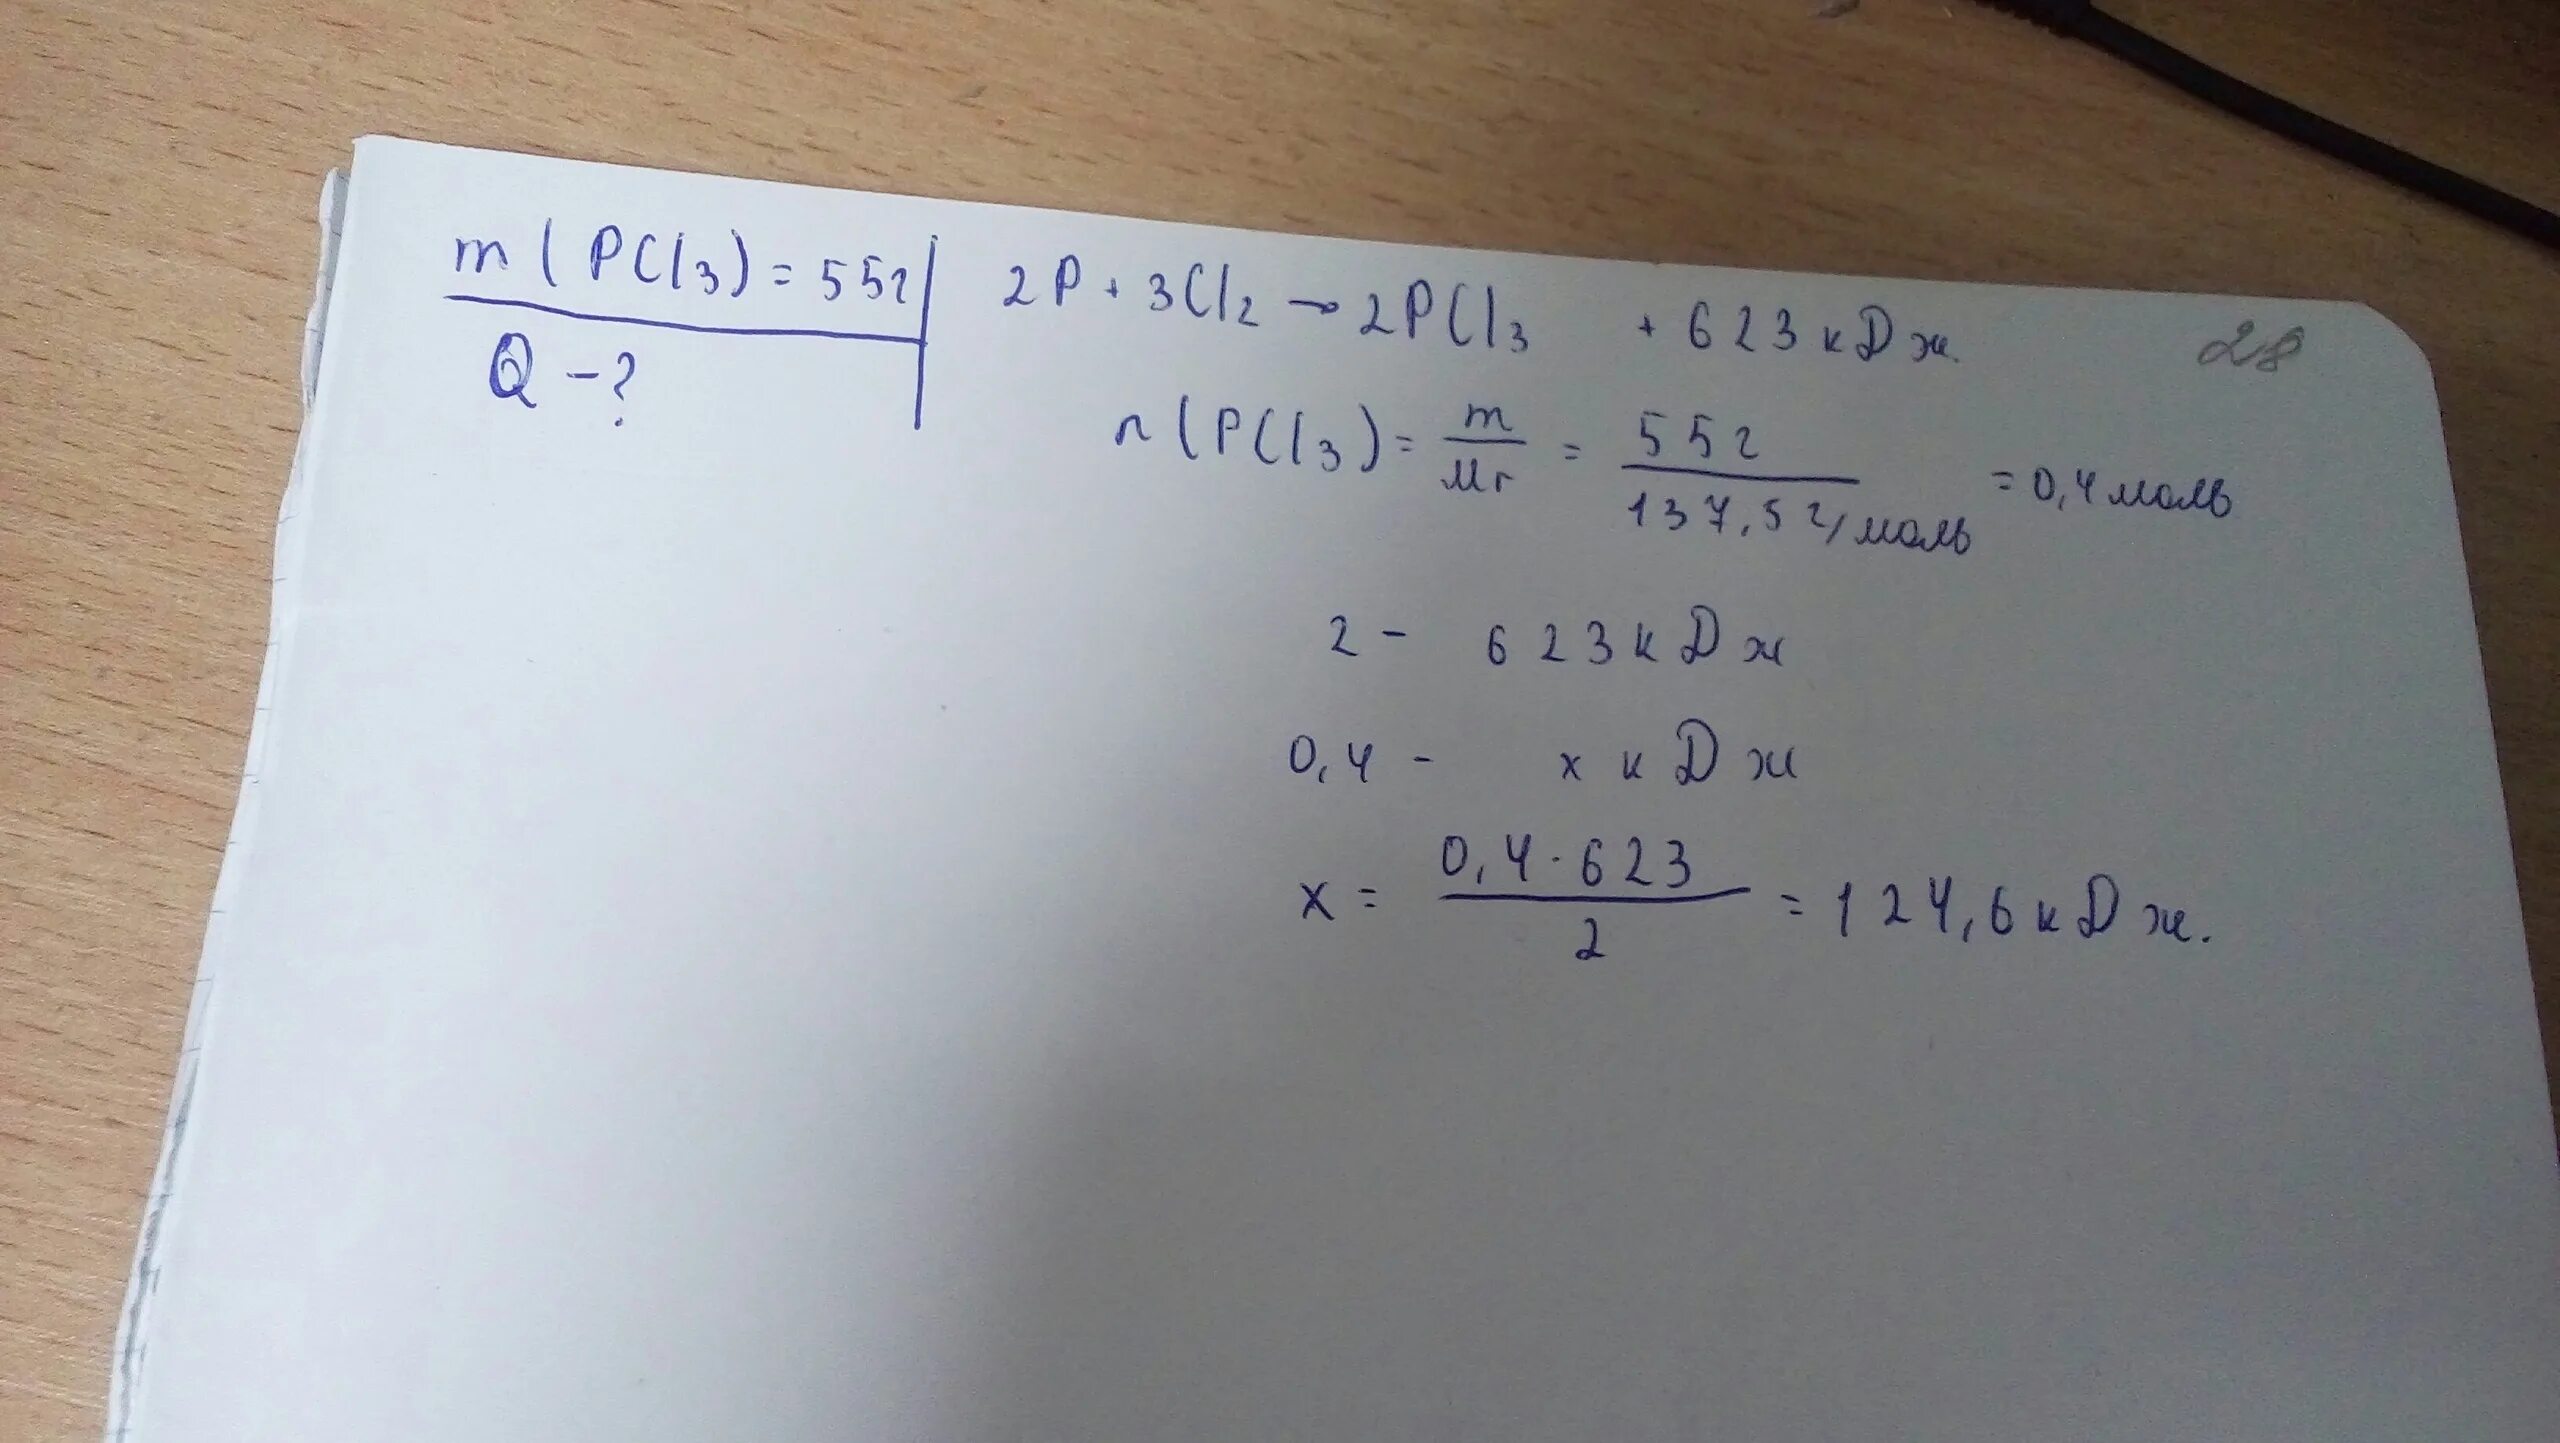 m(PCl3) = 55г
Q - ?
2P + 3Cl2 → 2PCl3 + 623 кДж.
28
n(PCl3) = m/Mr = 55г/137,5г/моль = 0,4 моль
2 - 623 кДж
0,4 - x кДж
x = 0,4·623/2 = 124,6 кДж.